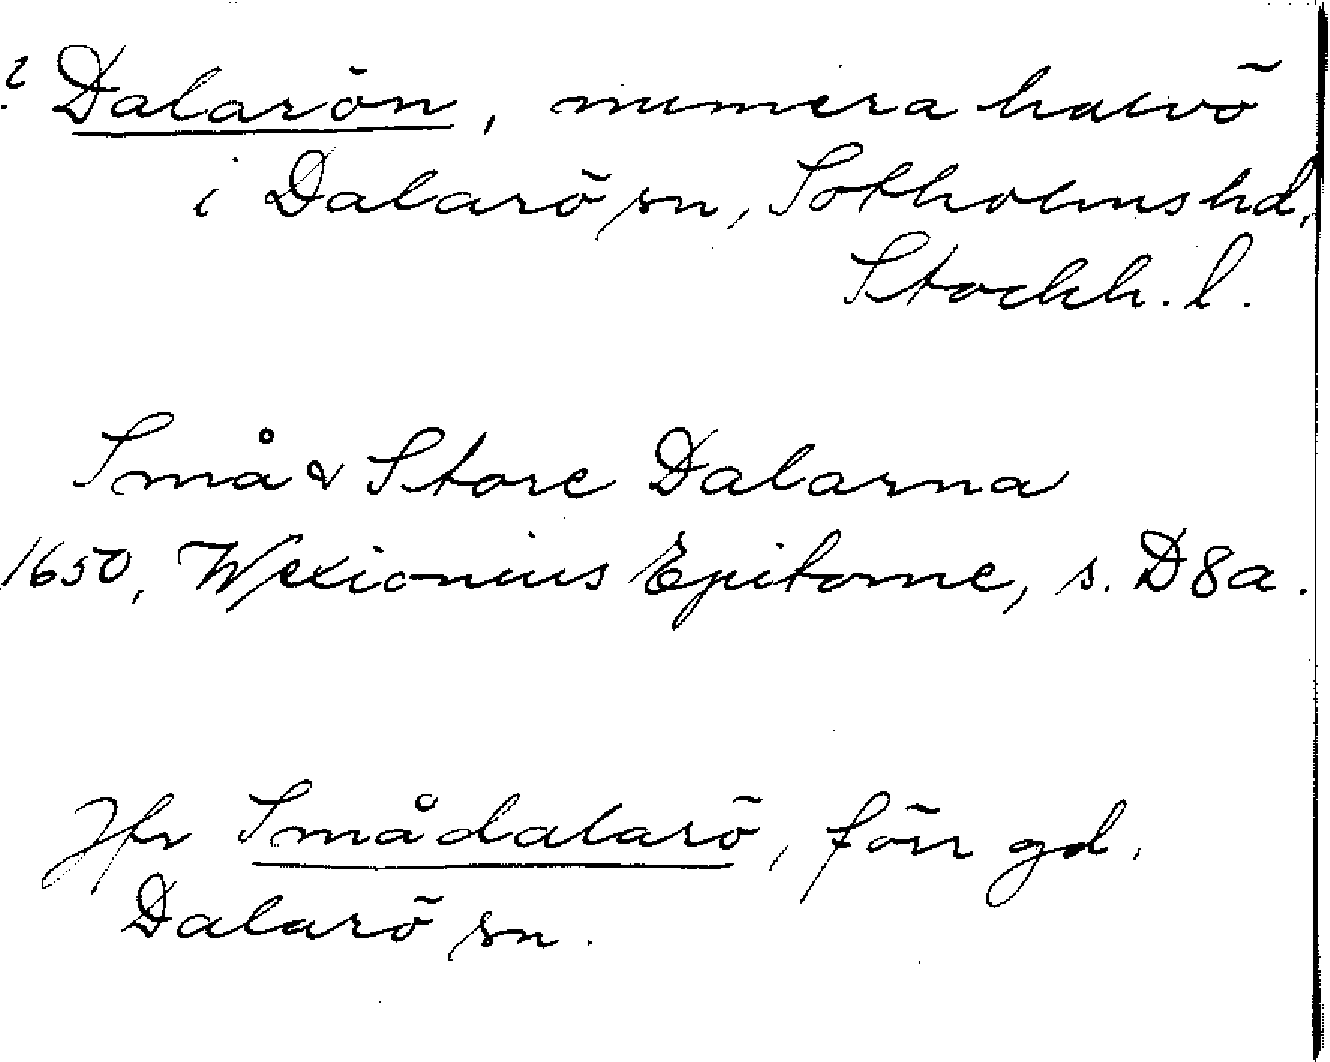 ? Dalarön, numera halvö
i Dalarö sn, Sotholms hd,
Stockh. l.
Små & Store Dalarna
1650, Wexionius Epitome, s. D8a.
Jfr Smådalarö, förr gd,
Dalarö sn.